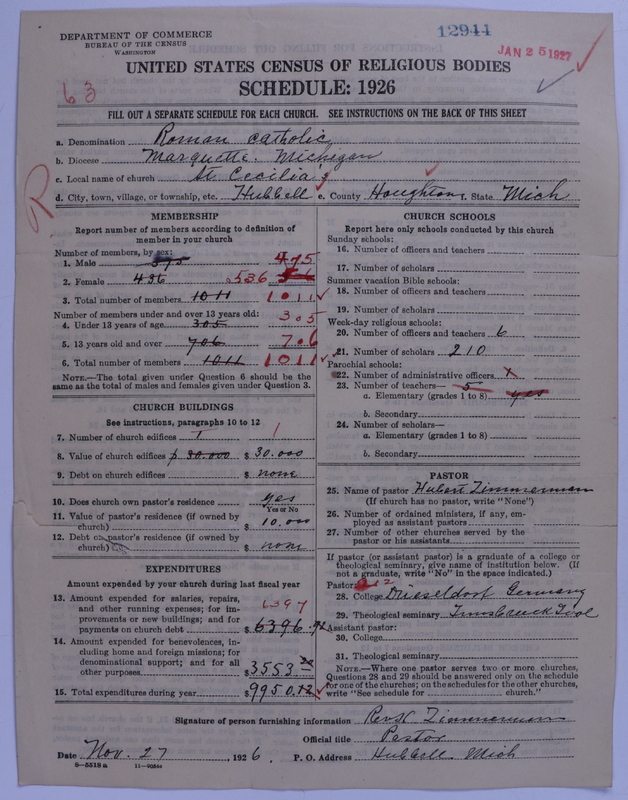 DEPARTMENT OF COMMERCE
BUREAU OF THE CENSUS
WASHINGTON
12944
JAN 25 1927
63
UNITED STATES CENSUS OF RELIGIOUS BODIES
SCHEDULE: 1926
FILL OUT A SEPARATE SCHEDULE FOR EACH CHURCH. SEE INSTRUCTIONS ON THE BACK OF THIS SHEET
a. Denomination Roman Catholic
b. Diocese Marquette. Michigan
c. Local name of church St Cecilia's
d. City, town, village, or township, etc. Hubbell e. County Houghton f. State Mich
R
MEMBERSHIP
Report number of members according to definition of
member in your church
Number of members, by sex:
1. Male 575 475
2. Female 436 536
3. Total number of members 1011 1011
Number of members under and over 13 years old:
4. Under 13 years of age 305 305
5. 13 years old and over 706 706
6. Total number of members 1011 1011
NOTE.—The total given under Question 6 should be
same as the total of males and females given under Question 3.
CHURCH BUILDINGS
See instructions, paragraphs 10 to 12
7. Number of church edifices 1 1
8. Value of church edifices $ 30.000 $ 30.000
9. Debt on church edifices $ none
10. Does church own pastor's residence yes
Yes or No
11. Value of pastor's residence (if owned by
church) $ 10.000
12. Debt on pastor's residence (if owned by
church) $ none
EXPENDITURES
Amount expended by your church during last fiscal year
13. Amount expended for salaries, repairs,
and other running expenses; for im-
provements or new buildings; and for
payments on church debt $ 6396.92
6397
14. Amount expended for benevolences, in-
cluding home and foreign missions; for
denominational support; and for all
other purposes $ 3553
15. Total expenditures during year $ 9950.12
CHURCH SCHOOLS
Report here only schools conducted by this church
Sunday schools:
16. Number of officers and teachers
17. Number of scholars
Summer vacation Bible schools:
18. Number of officers and teachers
19. Number of scholars
Week-day religious schools:
20. Number of officers and teachers 6
21. Number of scholars 210
Parochial schools:
22. Number of administrative officers 1
23. Number of teachers— 5
a. Elementary (grades 1 to 8) yes
b. Secondary
24. Number of scholars—
a. Elementary (grades 1 to 8)
b. Secondary
PASTOR
25. Name of pastor Hubert Zimmerman
(If church has no pastor, write "None")
26. Number of ordained ministers, if any, em-
ployed as assistant pastors
27. Number of other churches served by the
pastor or his assistants
If pastor (or assistant pastor) is a graduate of a college or
theological seminary, give name of institution below. (If
not a graduate, write "No" in the space indicated.)
Pastor:
28. College Duesseldorf Germany
29. Theological seminary Innsbruck Tirol
Assistant pastor:
30. College
31. Theological seminary
NOTE.—Where one pastor serves two or more churches,
Questions 28 and 29 should be answered only on the schedule
for one of the churches; on the schedules for the other churches,
write "See schedule for church."
Signature of person furnishing information Rev H Zimmerman
Official title Pastor
Date Nov. 27, 1926. P. O. Address Hubbell Mich
8—5518a 11—9088